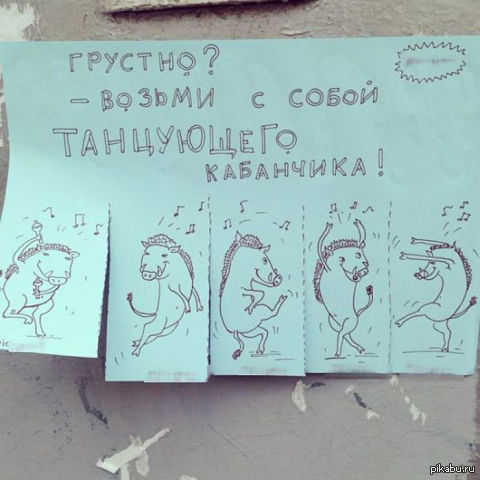 ГРУСТНО?
- ВОЗЬМИ С СОБОЙ
ТАНЦУЮЩЕГО
КАБАНЧИКА!
pikabu.ru